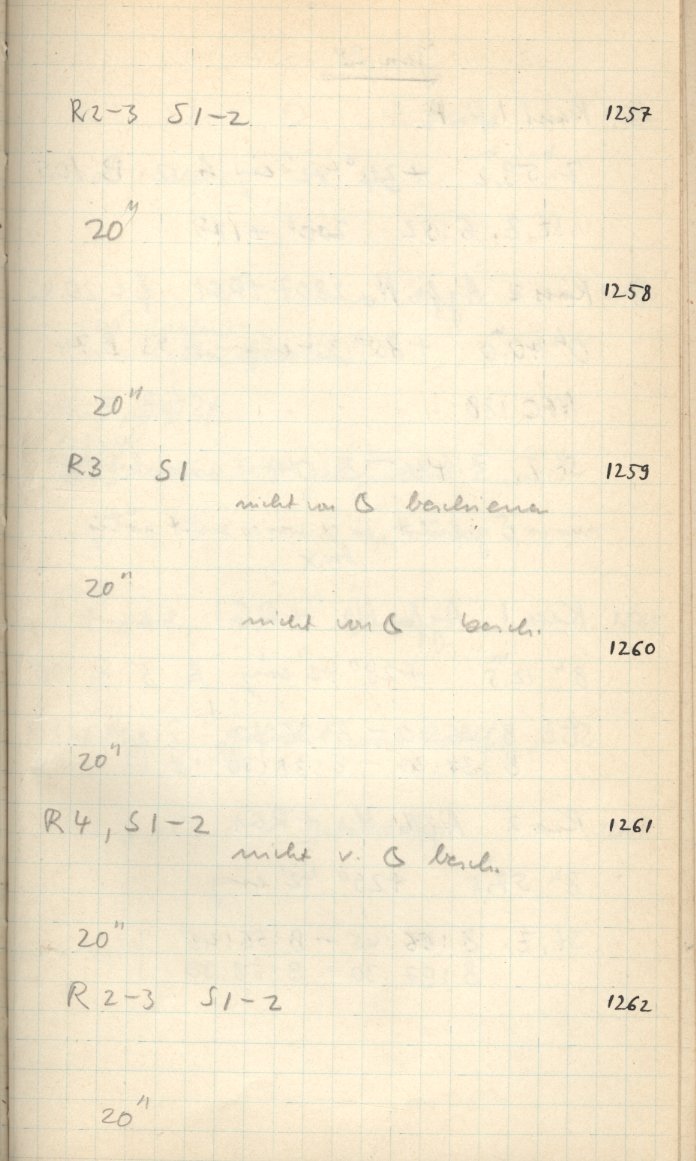 R2-3 S1-2 1257
20"
1258
20"
R3 S1 1259
nicht von beschienen
20"
nicht von besch.
1260
20"
R4, S1-2 1261
nicht v. besch.
20"
R2-3 S1-2 1262
20"